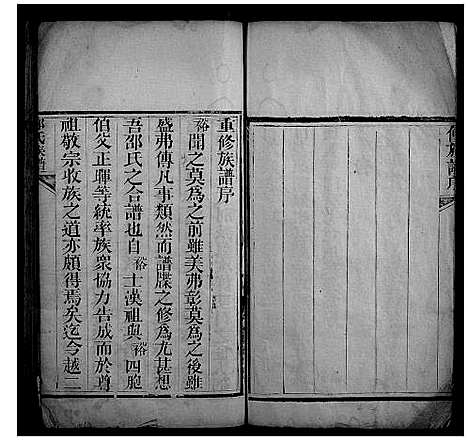 重修族譜序
裕聞之莫為之前雖美弗彰莫為之後雖
盛弗傳凡事類然而譜牒之修為尤甚想
吾邵氏之合譜也自裕士漢祖與裕四胞
伯父正暉等統率族衆協力告成而於尊
祖敬宗收族之道亦頗得焉矣迄今越二
族譜序